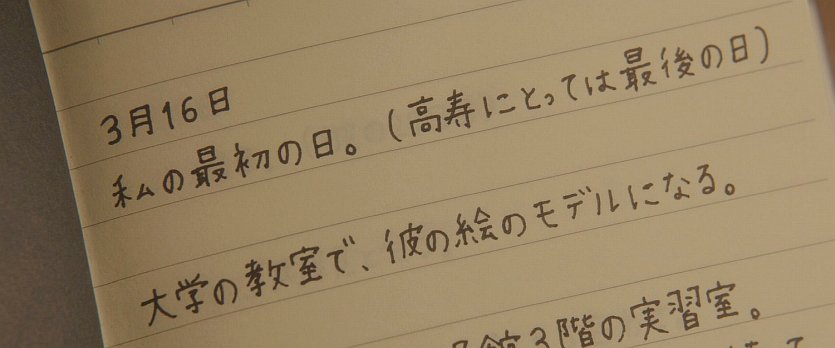 3月16日
私の最初の日。(高寿にとっては最後の日)
大学の教室で、彼の絵のモデルになる。
館3階の実習室。